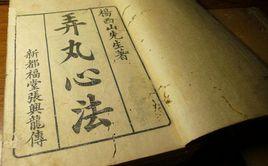 楊西山先生著
弄丸心法
新都福堂張興龍傳